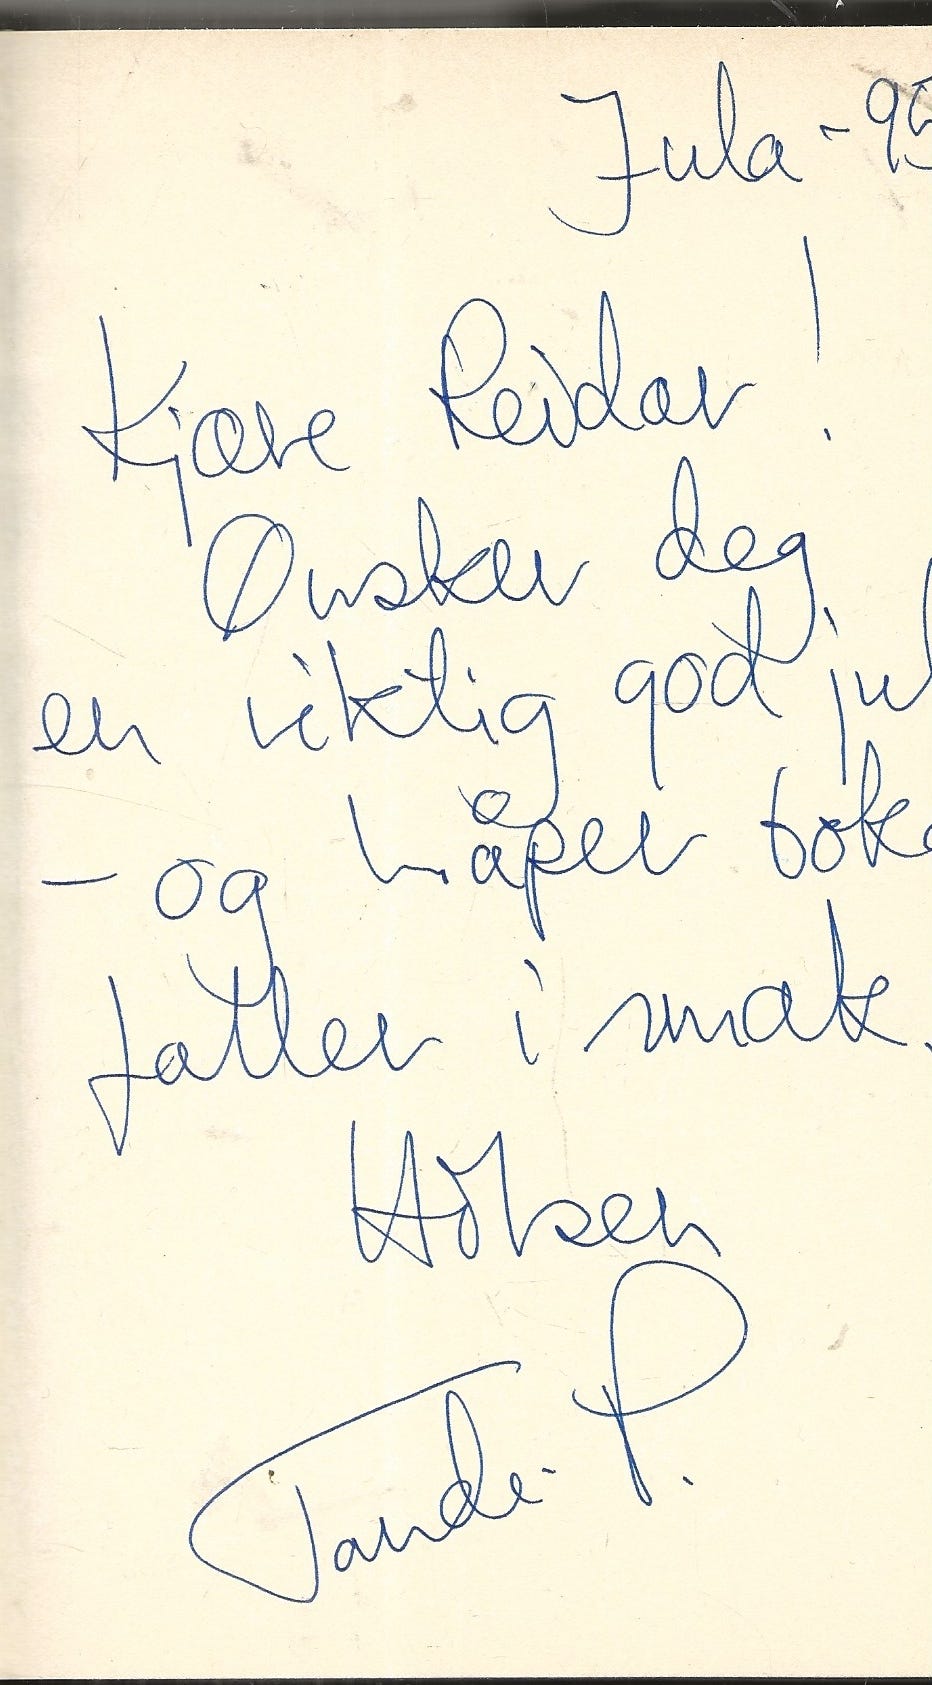 Jula - 95
Kjære Reidar!
Ønsker deg
en riktig god jul
- og håper boke
faller i smak.
Hilsen
Tande P.